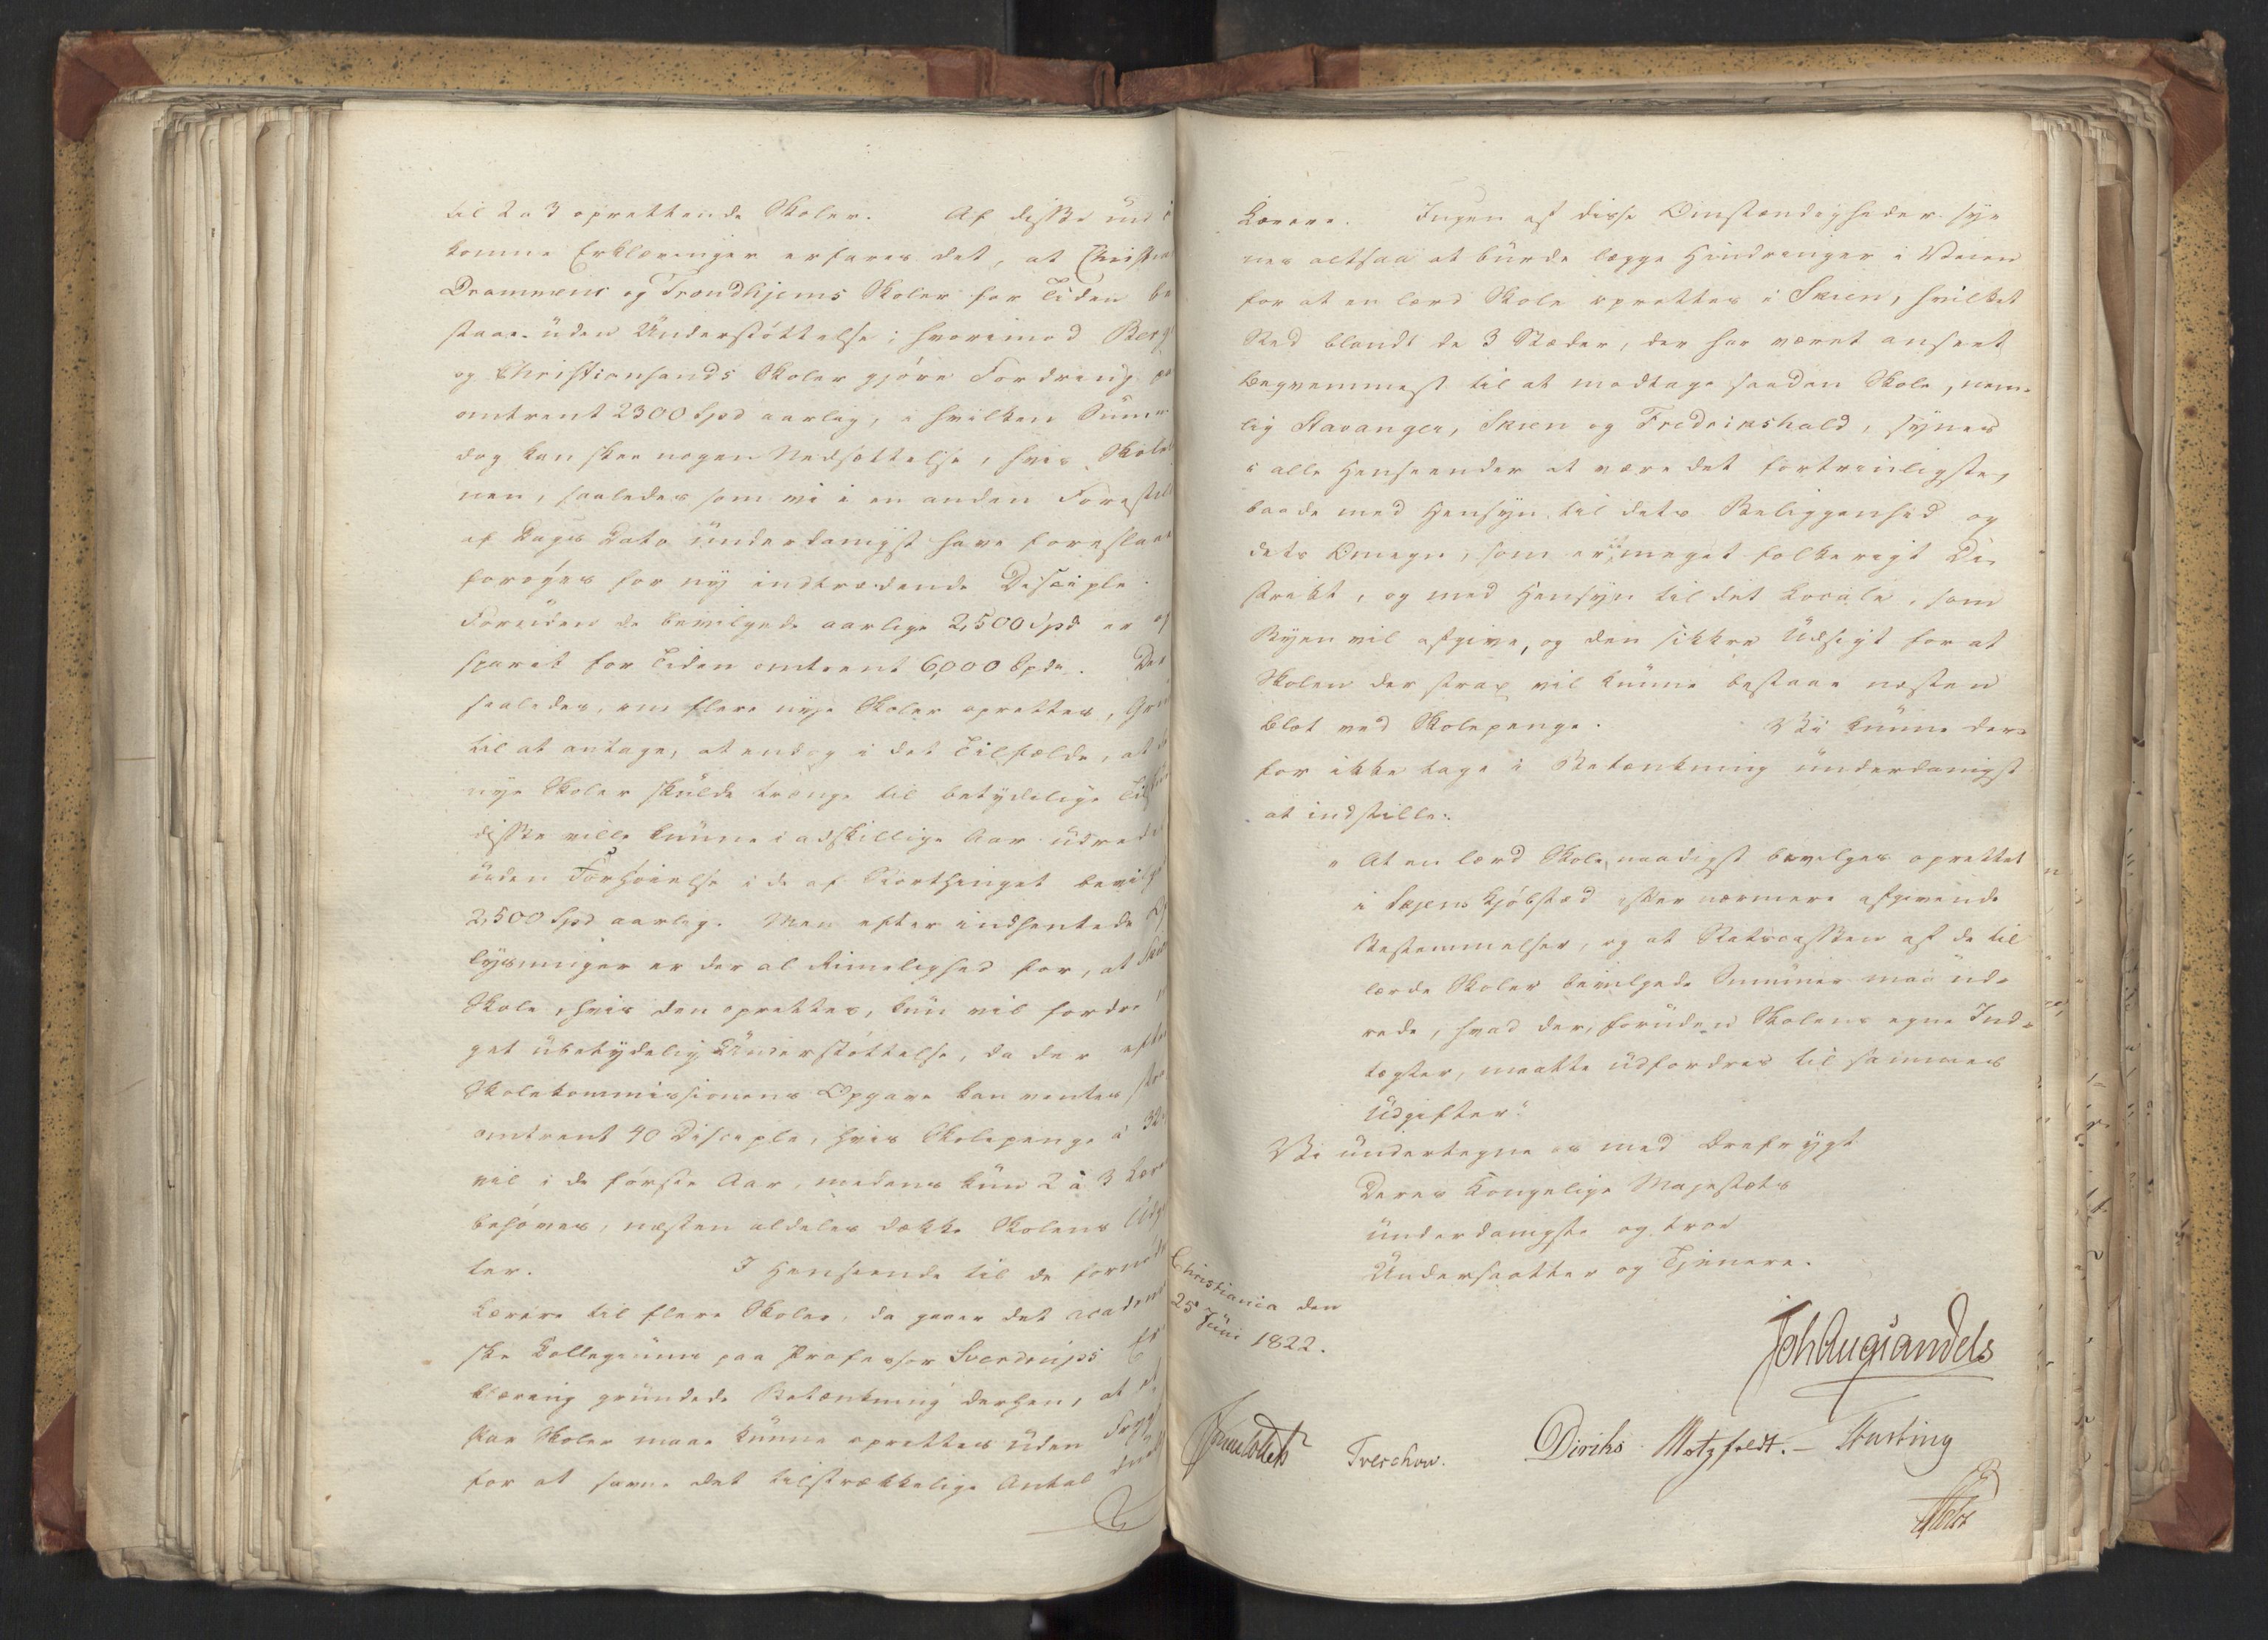 til 2 a 3 oprettende Skoler. Af disse ind
komne Erklæringer erfares det, at Christia
Drammens og Trondhjems Skoler for Tiden be
staae uden Understøttelse; hvorimod Berg
og Christiansands Skoler gjøre Fordring paa
omtrent 2300 Spd aarlig, i hvilken Sum
dog kan skee nogen Nedsættelse, hvis Skole
nen, saaledes som vi i en anden Forestil
af Dags Dato underdanigst have foreslaaet
forøges for ny indtrædende Disciple.
Foruden de bevilgede aarlige 2,500 Spd er op
sparet for Tiden omtrent 6,000 Spd. Der
saaledes, om flere nye Skoler oprettes, Grund
til at antage, at endog i det Tilfælde, at de
nye Skoler skulde trænge til betydelige Til
disse ville kunne i adskillige Aar udredes
uden Forhøielse i de af Storthinget bevilgede
2,500 Spd aarlig. Men efter indhentede Op
lysninger er der al Rimelighed for, at Skien
Skole, hvis den oprettes, kun vil fordre
get ubetydelig Understøttelse, da der efter
Skolekommissionens Opgave kan ventes strax
omtrent 40 Disciple, hvis Skolepenge à 32
vil i de første Aar, medens kun 2 à 3 Lærere
behøves, næsten aldeles dække Skolens Udgif
ter. I Henseende til de fornødne
Lærere til flere Skoler, da gaaer det academi
ske Kollegiums paa Professor Sverdrups Er
klæring grundede Betænkning derhen, at et
Par Skoler maae kunne oprettes uden Frygt
for at savne det tilstrækkelige Antal
Lærere. Ingen af disse Omstændigheder sy
nes altsaa at burde lægge Hindringer i Veien
for at en lærd Skole oprettes i Skien, hvilket
Sted blandt de 3 Stæder, der har været anseet
beqvemmest til at modtage saadan Skole, nem-
lig Stavanger, Skien og Fredrikshald, synes
i alle Henseender at være det fortrinligste,
baade med Hensyn til dets Beliggenhed og
dets Omegn, som er et meget folkerigt Di-
strikt, og med Hensyn til det Locale, som
Byen vil afgive, og den sikkre Udsigt for at
Skolen der strax vil kunne bestaae næsten
blot ved Skolepenge. Vi kunne der-
for ikke tage i Betænkning underdanigst
at indstille:
"At en lærd Skole naadigst bevilges oprettet
i Skiens Kjøbstæd efter nærmere afgivende
Bestemmelser, og at Statscassen af de til
lærde Skoler bevilgede Summer maa ud-
rede, hvad der, foruden Skolens egne Ind-
tægter, maatte udfordres til sammes
Udgifter."
Vi undertegne os med Ærefrygt
Deres Kongelige Majestæts
underdanigste og troe
Undersaatter og Tjenere.
Christiania den
25 Juni 1822.
JohAugSandels
Treschow. Diriks Motzfeldt.
Holst